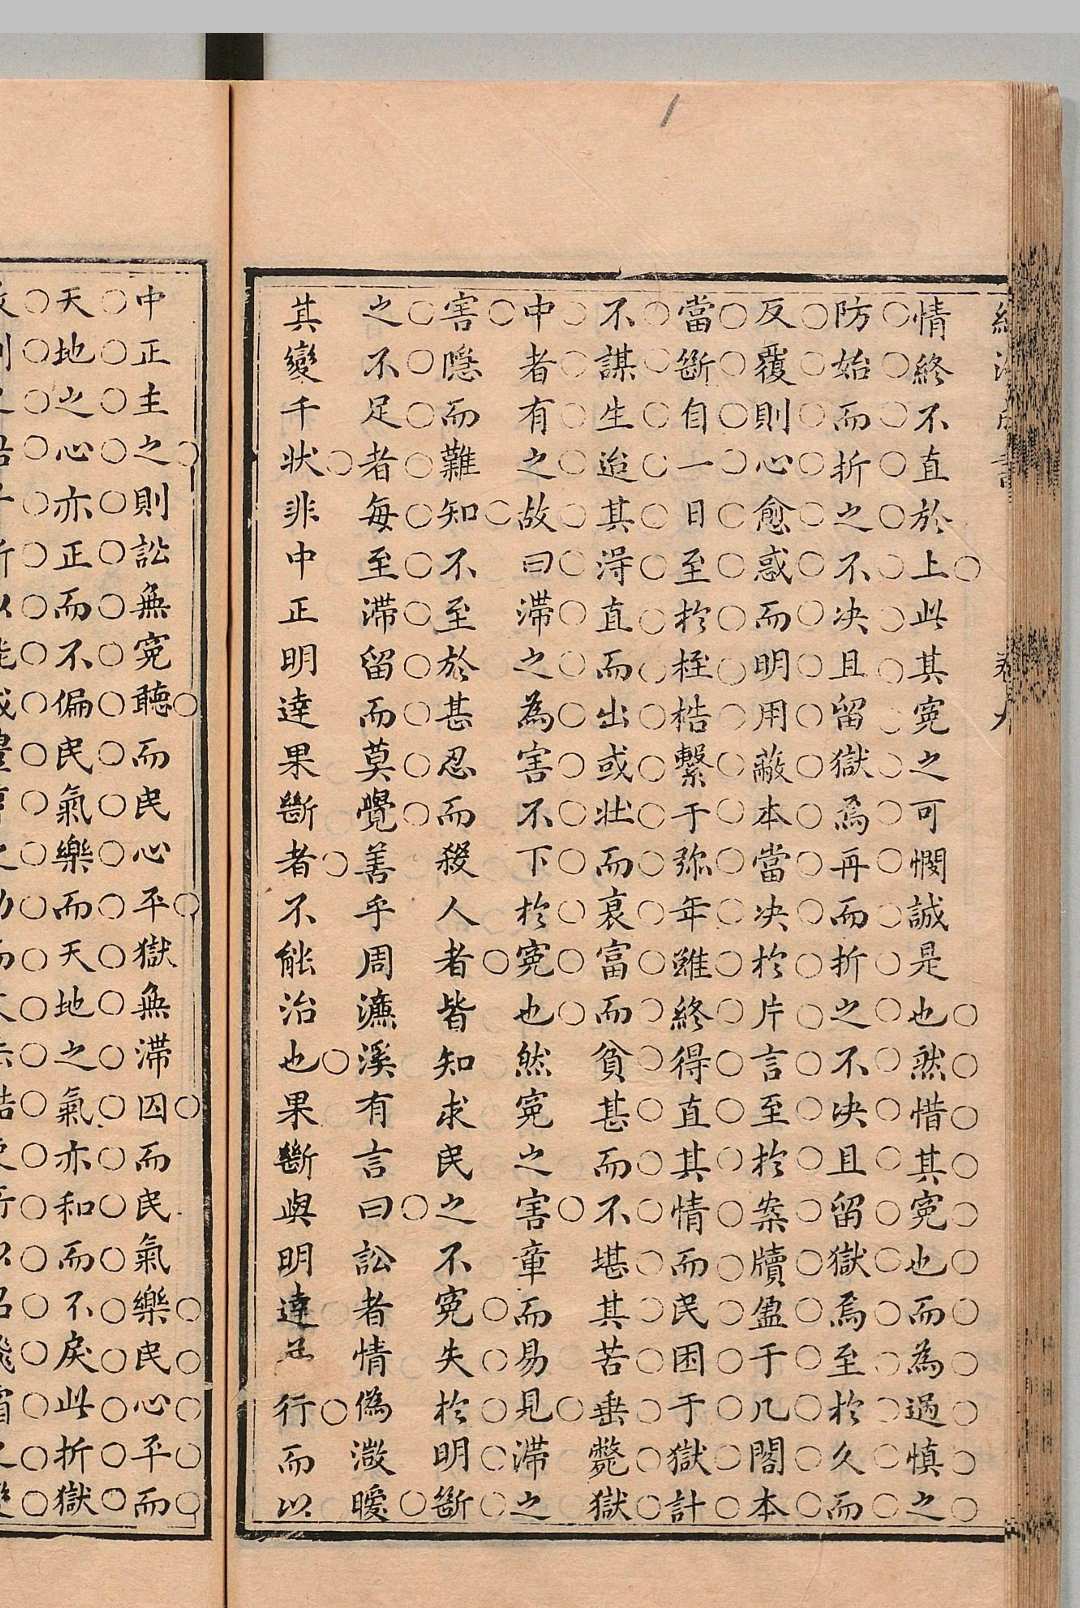 情終不直於上此其寃之可憫誠是也然惜其寃也而為過慎之
防始而折之不决且留獄焉再而折之不决且留獄焉至於久而
反覆則心愈惑而明用蔽本當决於片言至於案牘盈于几閣本
當斷自一日至於桎梏繫于弥年雖終得直其情而民困于獄計
不謀生迨其淂直而出或壮而衰富而貧甚而不堪其苦垂斃獄
中者有之故曰滞之為害不下於寃也然寃之害章而易見滞之
害隱而難知不至於甚忍而殺人者皆知求民之不寃失於明斷
之不足者每至滞留而莫覺善乎周濂溪有言曰訟者情偽微曖
其變千状非中正明達果斷者不能治也果斷與明達並行而以
中正主之則訟無寃聽而民心平獄無滞囚而民氣樂民心平而
天地之心亦正而不偏民氣樂而天地之氣亦和而不戾此折獄